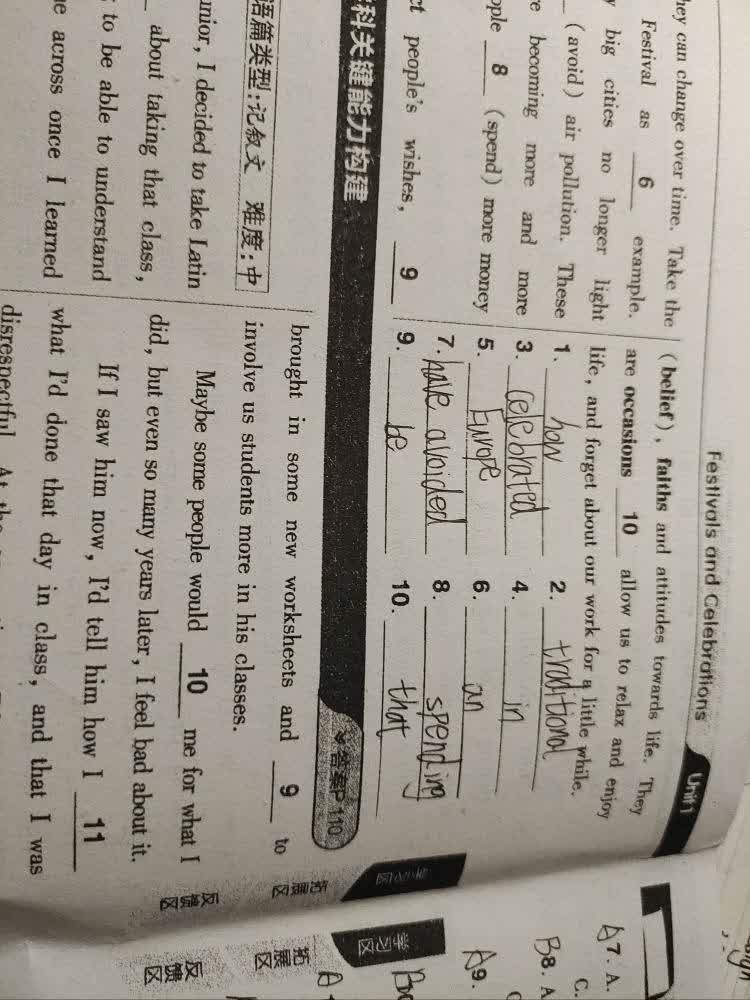 Festivals and Celebrations Unit 1
hey can change over time. Take the
Festival as 6 example.
y big cities no longer light
(avoid) air pollution. These
re becoming more and more
ople 8 (spend) more money
ct people's wishes, 9
(belief), faiths and attitudes towards life. They
are occasions 10 allow us to relax and enjoy
life, and forget about our work for a little while.
1. how 2. traditional
3. celebrated 4. in
5. Europe 6. an
7. have avoided 8. spending
9. be 10. that
科关键能力构建 答案P.110
语篇类型:记叙文 难度:中
unior, I decided to take Latin
about taking that class,
to be able to understand
e across once I learned
brought in some new worksheets and 9 to
involve us students more in his classes.
Maybe some people would 10 me for what I
did, but even so many years later, I feel bad about it.
If I saw him now, I'd tell him how I 11
what I'd done that day in class, and that I was
disrespectful. At the
学习区
拓展区
反馈区
学习区
拓展区
反馈区
A 7. A.
C.
B 8. A
A 9.
C
B
A